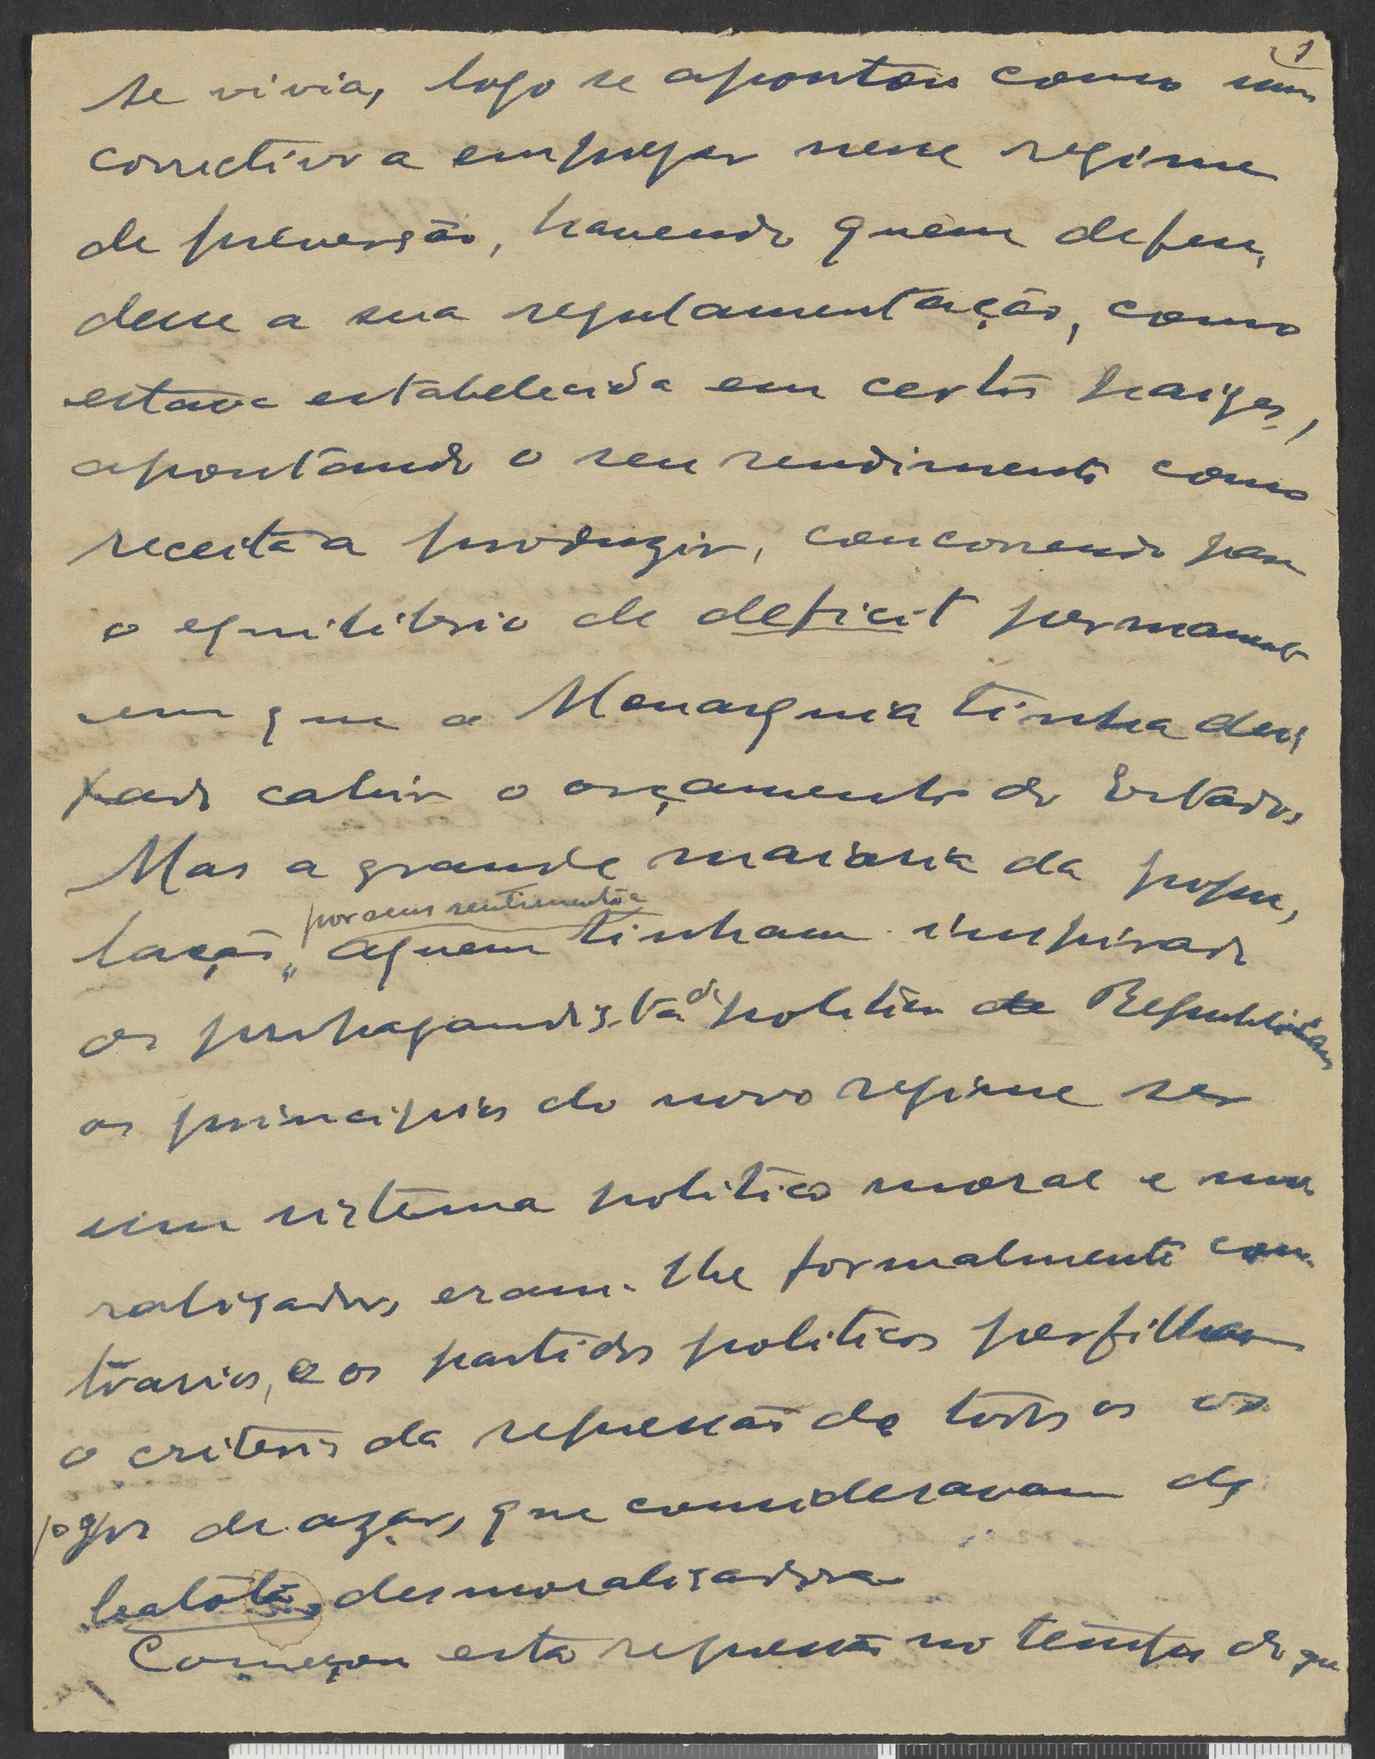 1
se vivia, logo se apontou como um
correctivo a empregar nesse regime
de prevenção, havendo quem defen,
desse a sua regulamentação, como
estava estabelecida em certos paizes,
apontando o seu rendimento como
receita a produzir, concorrendo para
o equilibrio de deficit permanente
em que a Monarquia tinha dei,
xado cahir o orçamento do Estado,
Mas a grande maioria da popu,
por seus sentimentos
lação,, a quem tinham inspirado
os propagandistas de politica de Republicana
os principios do novo regime ser
um sistema politico moral e mo
ralisador, eram-lhe formalmente con
trarios, e os partidos politicos perfilham
o criterio da repressão de todos os
jogos de azar, que consideravam de
batota desmoralisadora
Começou esta repressão no tempo do que